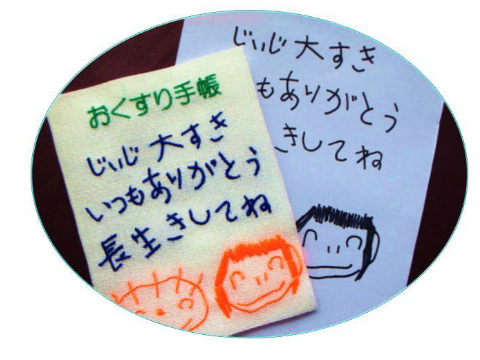 おくすり手帳
じいじ大すき
いつもありがとう
長生きしてね
じいじ大すき
もありがとう
きしてね